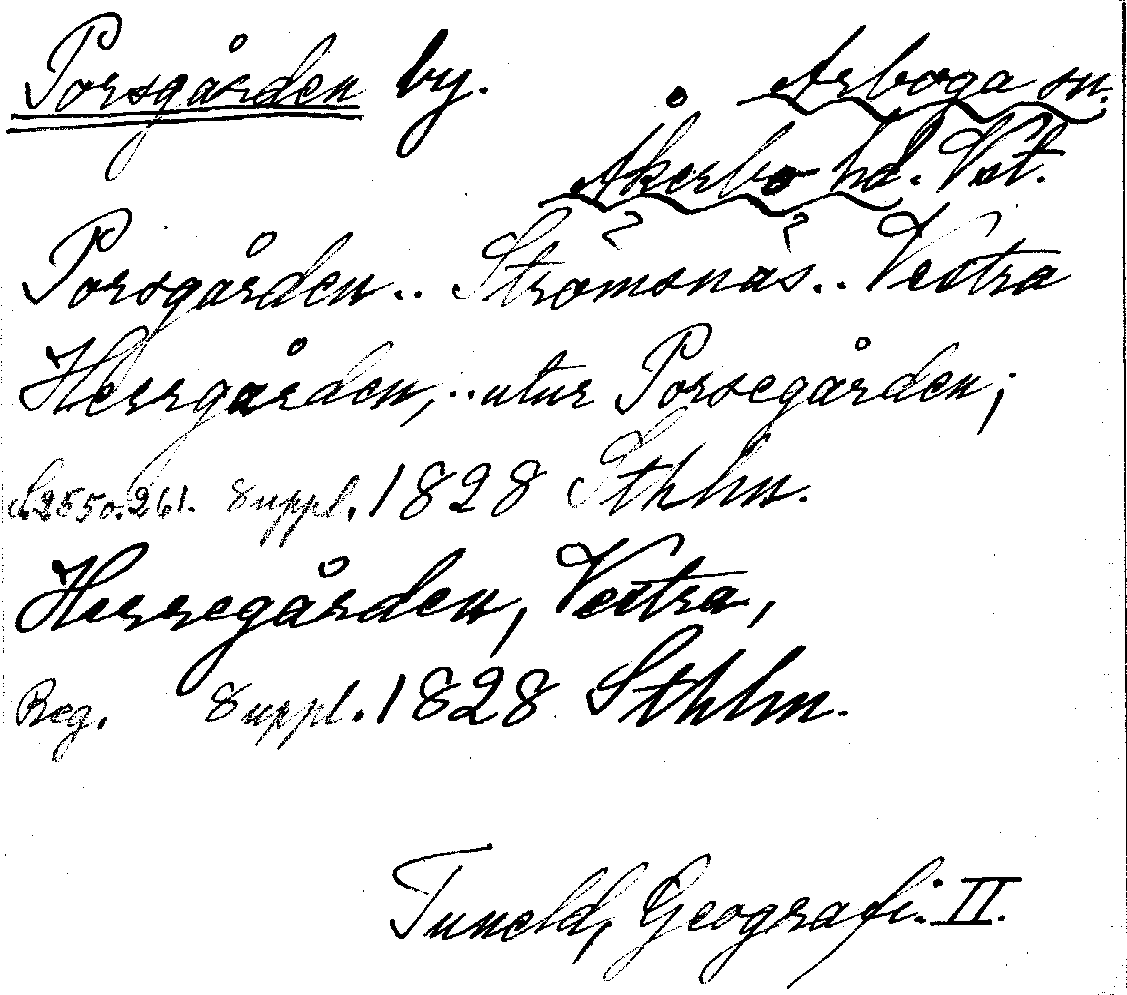 Porsgården by. Arboga sn.
Åkerbo hd. Vst.
Porsgården.. Strömsnäs.. Vestra
Herrgården,.. utur Porsegården;
s. 260. 261. Suppl. 1828 Sthlm.
Herregården, Vestra,
Reg. Suppl. 1828 Sthlm.
Tuneld, Geografi. II.